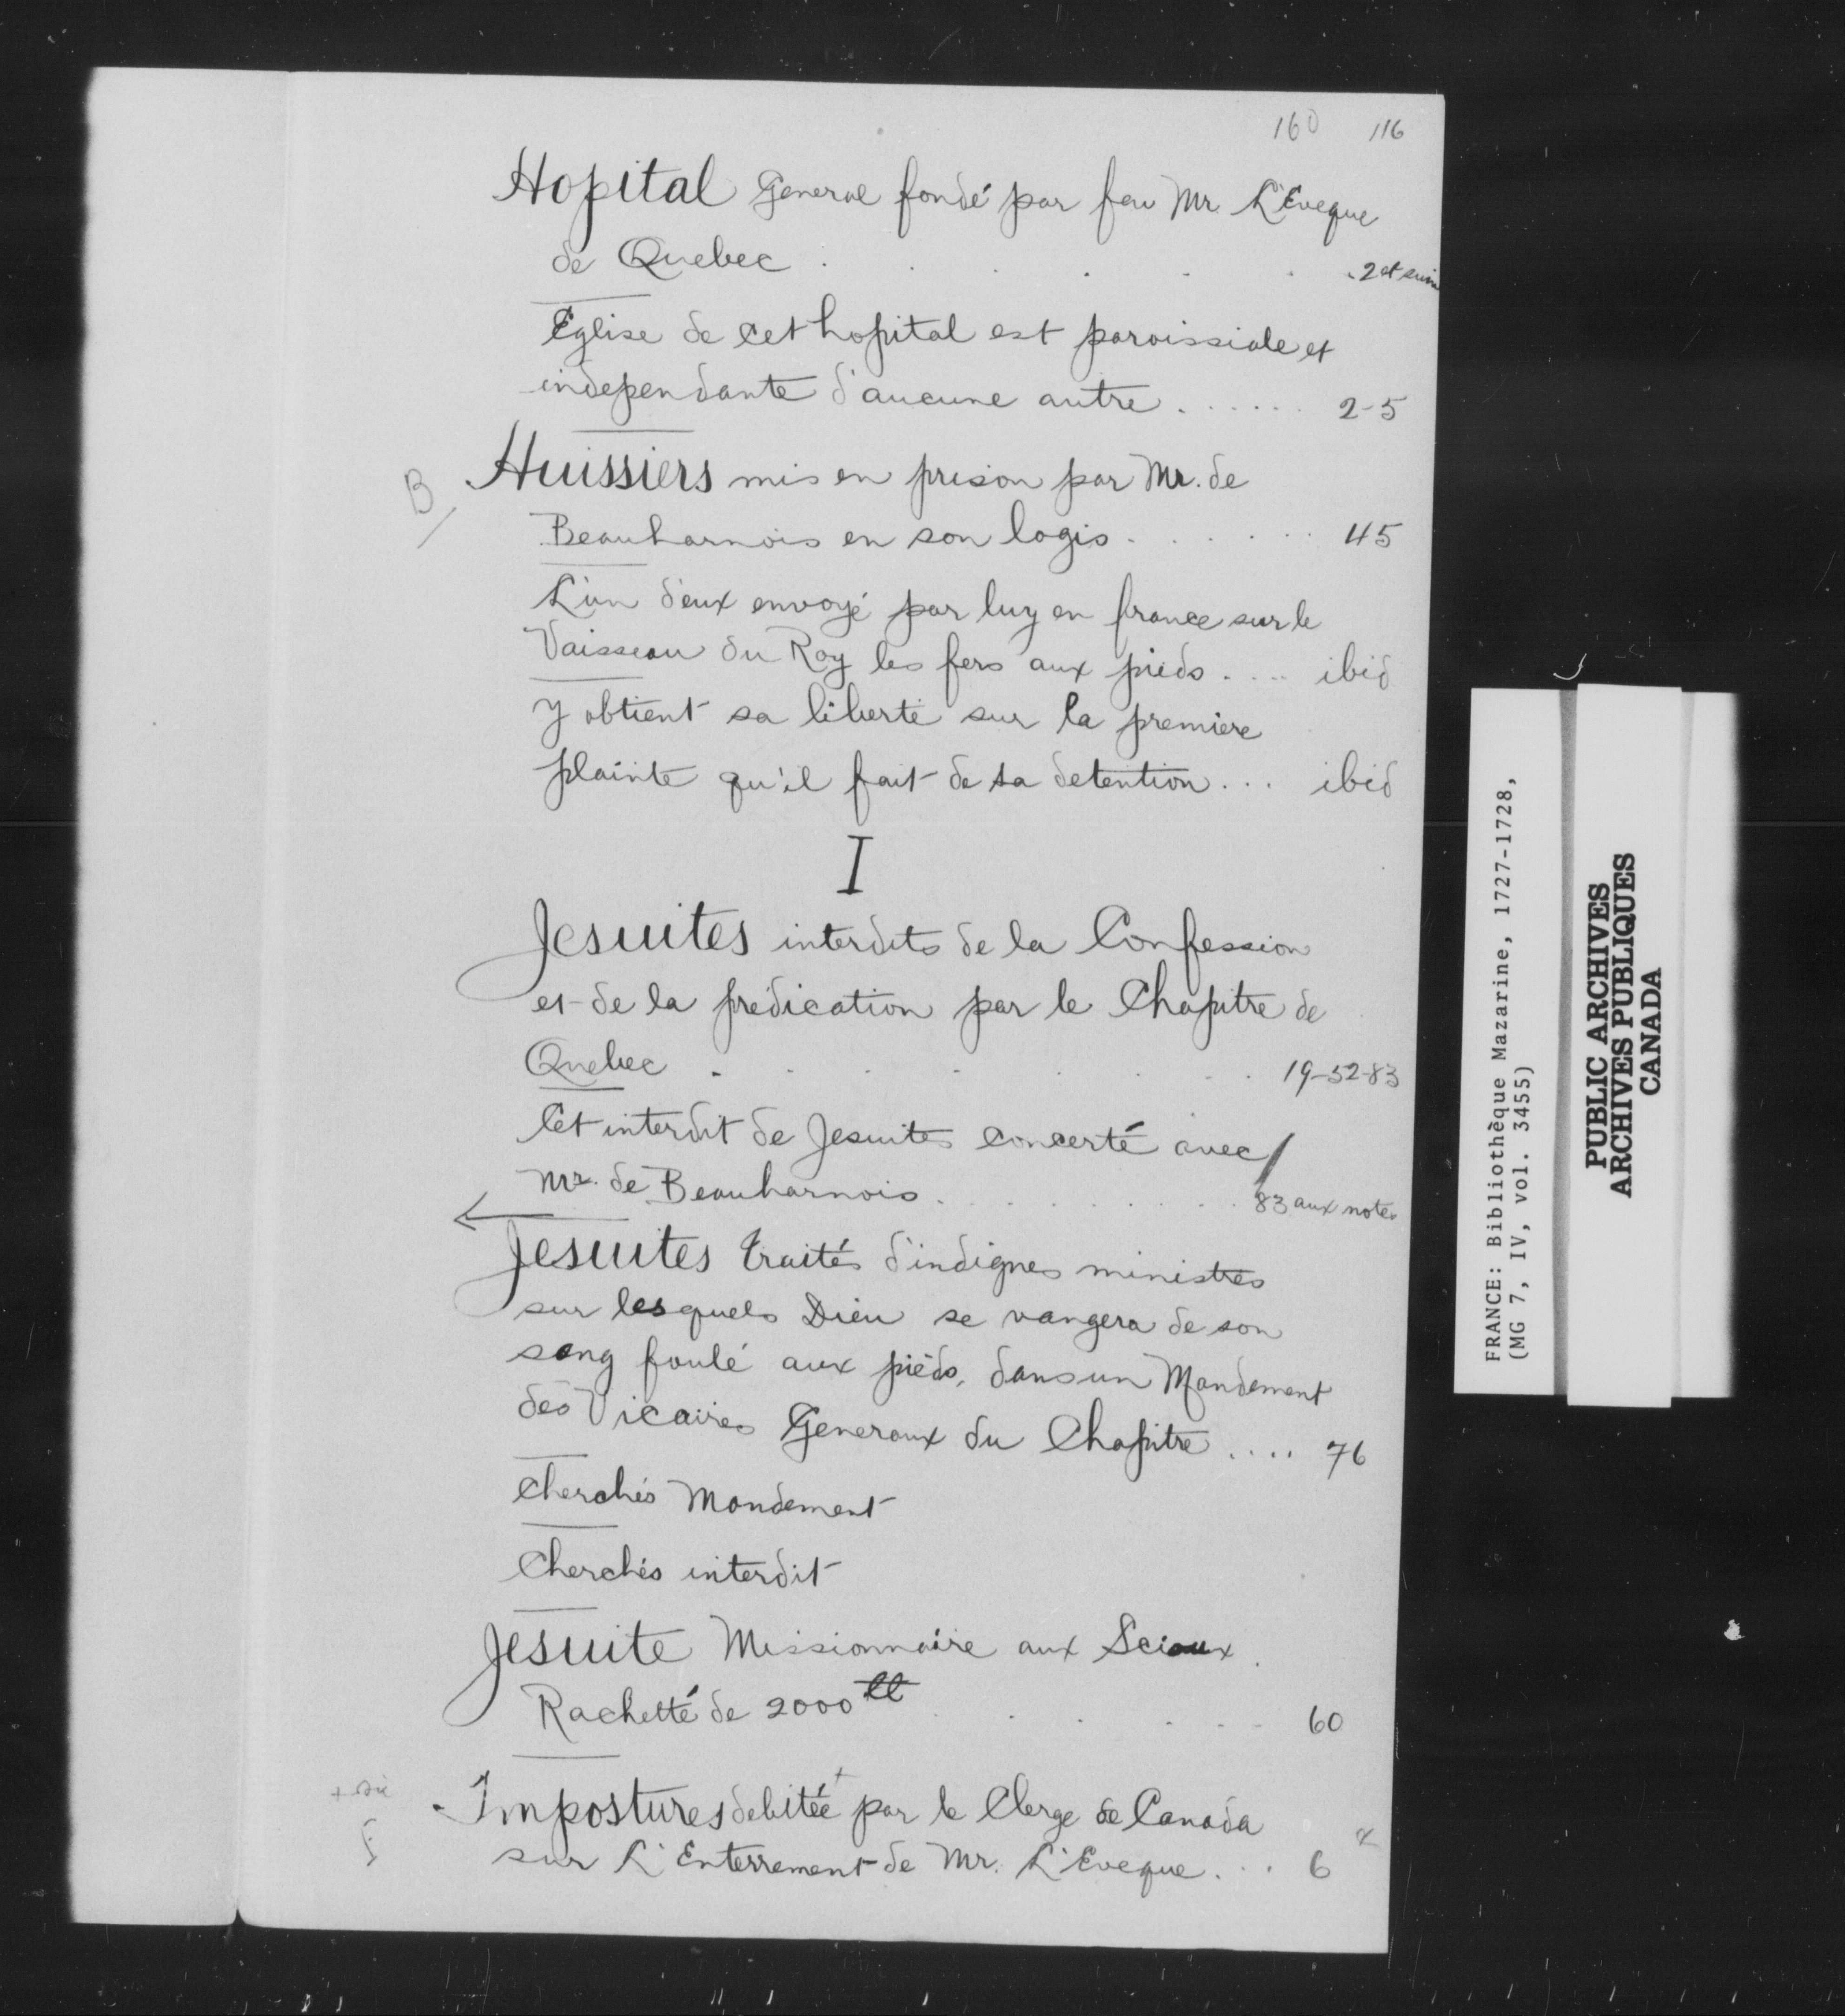 160 116
Hopital General fondé par feu Mr L'Eveque
de Quebec . . . . . . 2 et suiv
Eglise de cet hopital est paroissiale et
independante d'aucune autre ...... 2-5
B Huissiers mis en prison par Mr. de
Beauharnois en son logis ....... 45
L'un d'eux envoyé par luy en france sur le
Vaisseau du Roy les fers aux pieds .... ibid
y obtient sa liberté sur la premiere
plainte qu'il fait de sa detention ... ibid
I
Jesuites interdits de la Confession
et de la prédication par le Chapitre de
Quebec . . . . . . . 19-52-83
Cet interdit de Jesuites concerté avec
Mr. de Beauharnois . . . . . . . 83 aux notes
Jesuites traités d'indignes ministres
sur lesquels Dieu se vangera de son
sang foulé aux pieds, dans un Mandement
des Vicaires Generaux du Chapitre .... 76
Cherchés Mandement
Cherchés interdit
Jesuite Missionnaire aux Scioux
Rachetté de 2000 ll . . . . . 60
+ sic Impostures debitée + par le Clerge de Canada
sur L'Enterrement de Mr. L'Eveque ... 6
FRANCE: Bibliothèque Mazarine, 1727-1728,
(MG 7, IV, vol. 3455)
PUBLIC ARCHIVES
ARCHIVES PUBLIQUES
CANADA